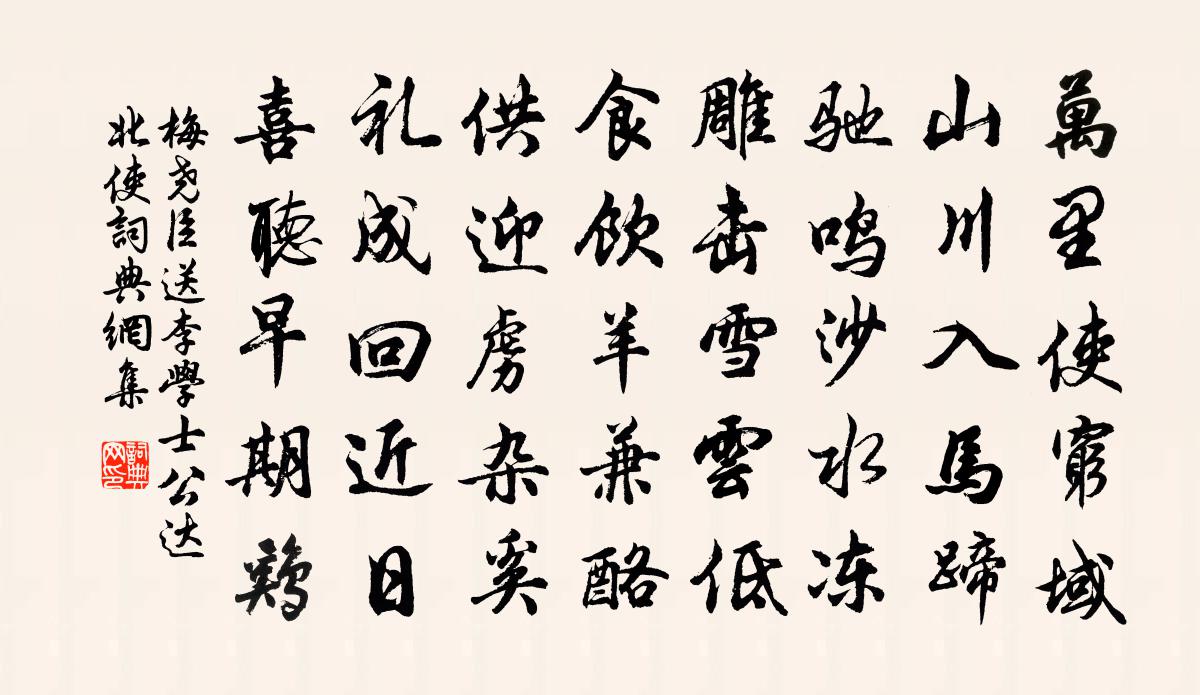 萬里使窮域
山川入馬蹄
驰鸣沙水冻
雕击雪雲低
食飲羊兼酪
供迎虏杂奚
礼成回近日
喜聽早期鷄
梅尧臣送李學士公达
北使詞典網集
詞典网印